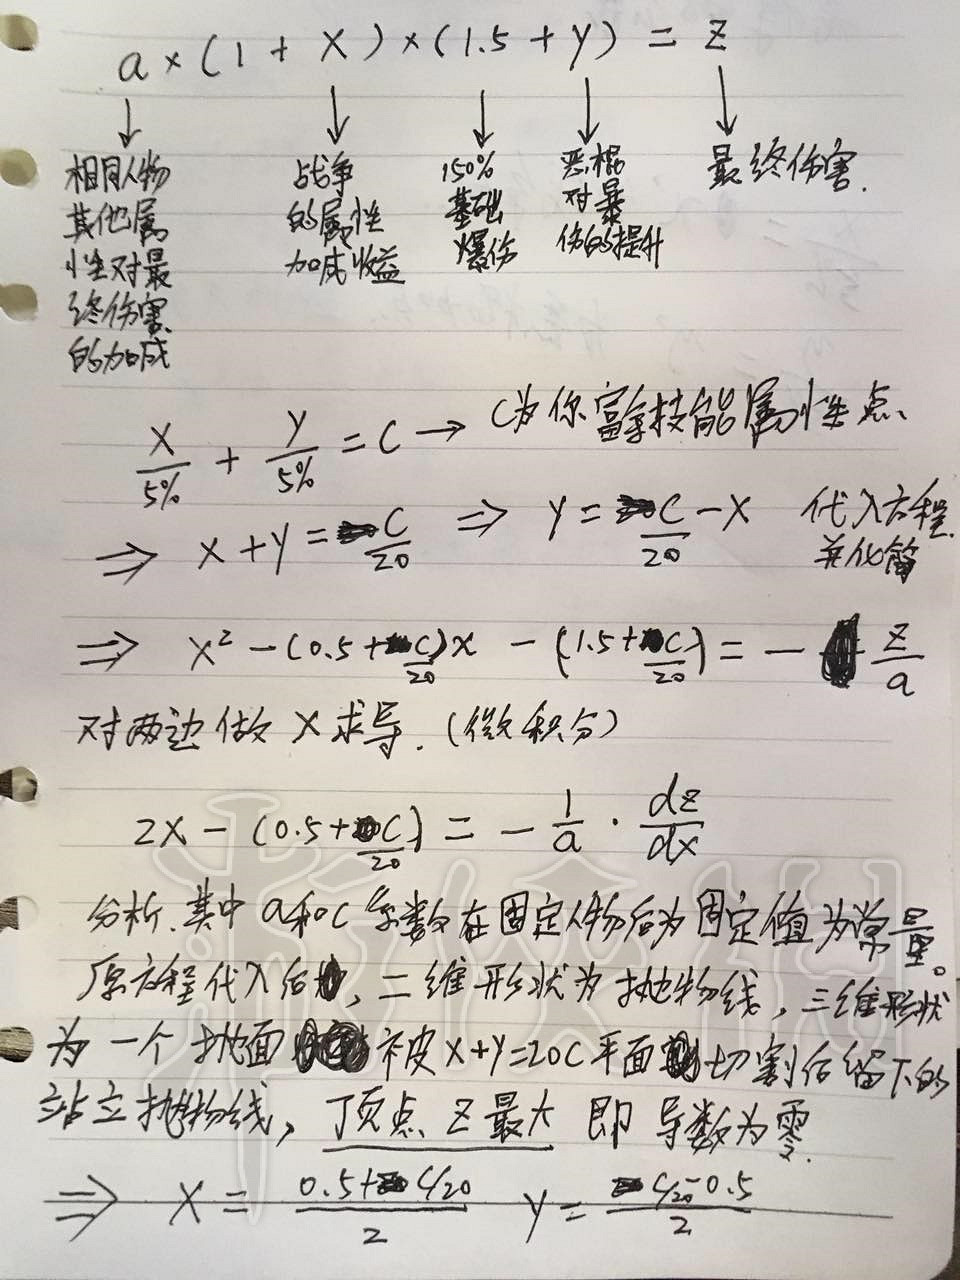 a × (1 + X) × (1.5 + y) = Z
相同人物
其他属
性对最
终伤害
的加成
战争
的属性
加成收益
150%
基础
爆伤
恶棍
对暴
伤的提升
最终伤害.
X/5% + Y/5% = C → C为你富拿技能属性点、
⇒ X + y = C/20 ⇒ Y = C/20 - X 代入方程.
并化简
⇒ X² - (0.5 + C/20)x - (1.5 + C/20) = - Z/a
对两边做X求导. (微积分)
2X - (0.5 + C/20) = - 1/a · dz/dx
分析. 其中a和C系数在固定人物后为固定值为常量。
原方程代入后, 二维形状为抛物线, 三维形状
为一个抛面被X+Y=20C平面切割后留下的
站立抛物线, 顶点Z最大 即导数为零.
⇒ X = (0.5 + C/20)/2 Y = (C/20 - 0.5)/2